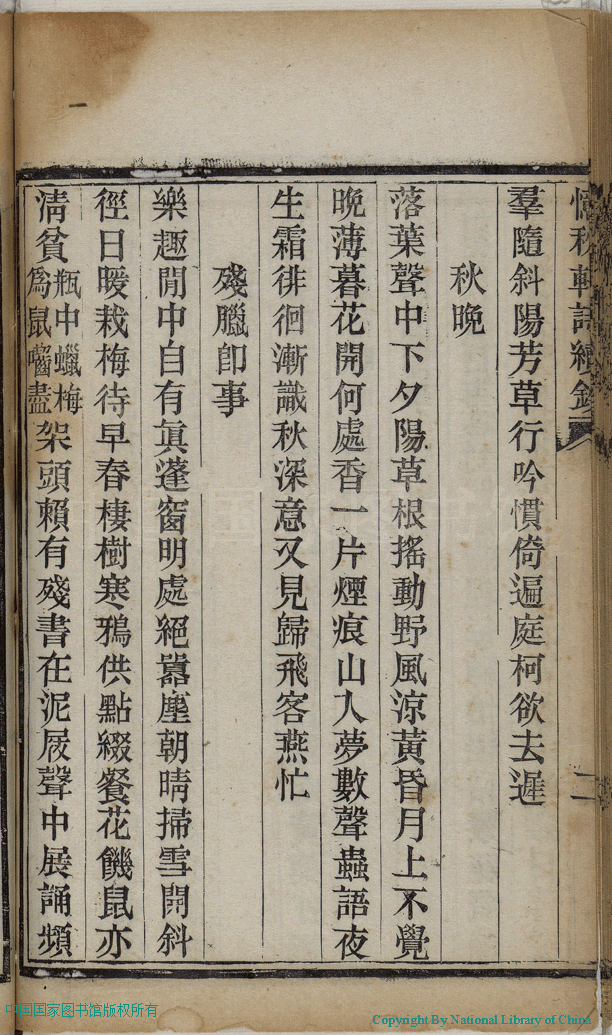 秋軒詩續鈔
二
羣隨斜陽芳草行吟慣倚遍庭柯欲去遲
秋晚
落葉聲中下夕陽草根搖動野風涼黃昏月上不覺
晚薄暮花開何處香一片煙痕山人夢數聲蟲語夜
生霜徘徊漸識秋深意又見歸飛客燕忙
殘臘卽事
樂趣閒中自有眞蓬窗明處絕囂塵朝晴掃雪開斜
徑日暖栽梅待早春棲樹寒鴉供點綴餐花饑鼠亦
淸貧瓶中蠟梅爲鼠嚙盡架頭賴有殘書在泥屐聲中展誦頻
中国国家图书馆版权所有
Copyright By National Library of China